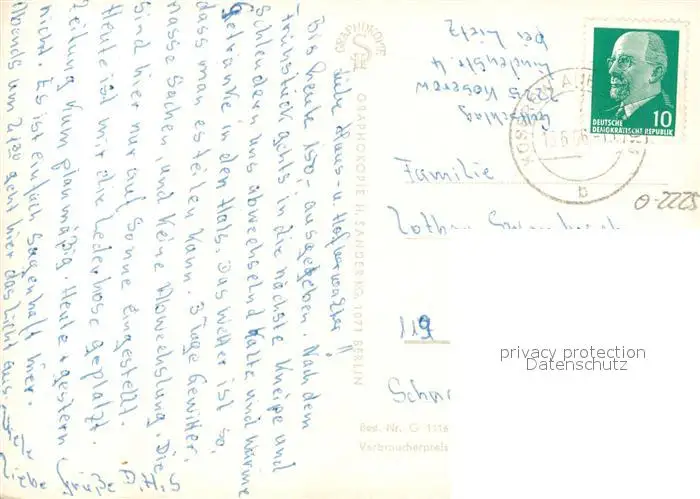 Liebe Haus- u. Hofverwalter!!
Bis heute 150,- ausgegeben. Nach dem
Frühstück gehts in die nächste Kneipe und
schlendern uns abwechselnd kalte und warme
Getränke in den Hals. Das Wetter ist so,
dass man es teilen kann. 3 Tage Gewitter,
nasse Sachen, und keine Abwechslung. Die
sind hier nur auf Sonne eingestellt.
Heute ist mir die Lederhose geplatzt.
Zeitung kum planmäßig. Heute + gestern
nicht. Es ist einfach sagenhaft hier.
Abends um 21.30 geht hier das Licht aus.
Liebe Grüße
GRAPHOKOPIE
GRAPHOKOPIE H. SANDER KG, 1071 BERLIN
bei Lietz
Lindenstr. 4
2225 Koserow
10
DEUTSCHE
DEMOKRATISCHE REPUBLIK
Familie
Lothar
119
Schön
Best. Nr. G 1116
Verbraucherpreis
O-2225
privacy protection
Datenschutz